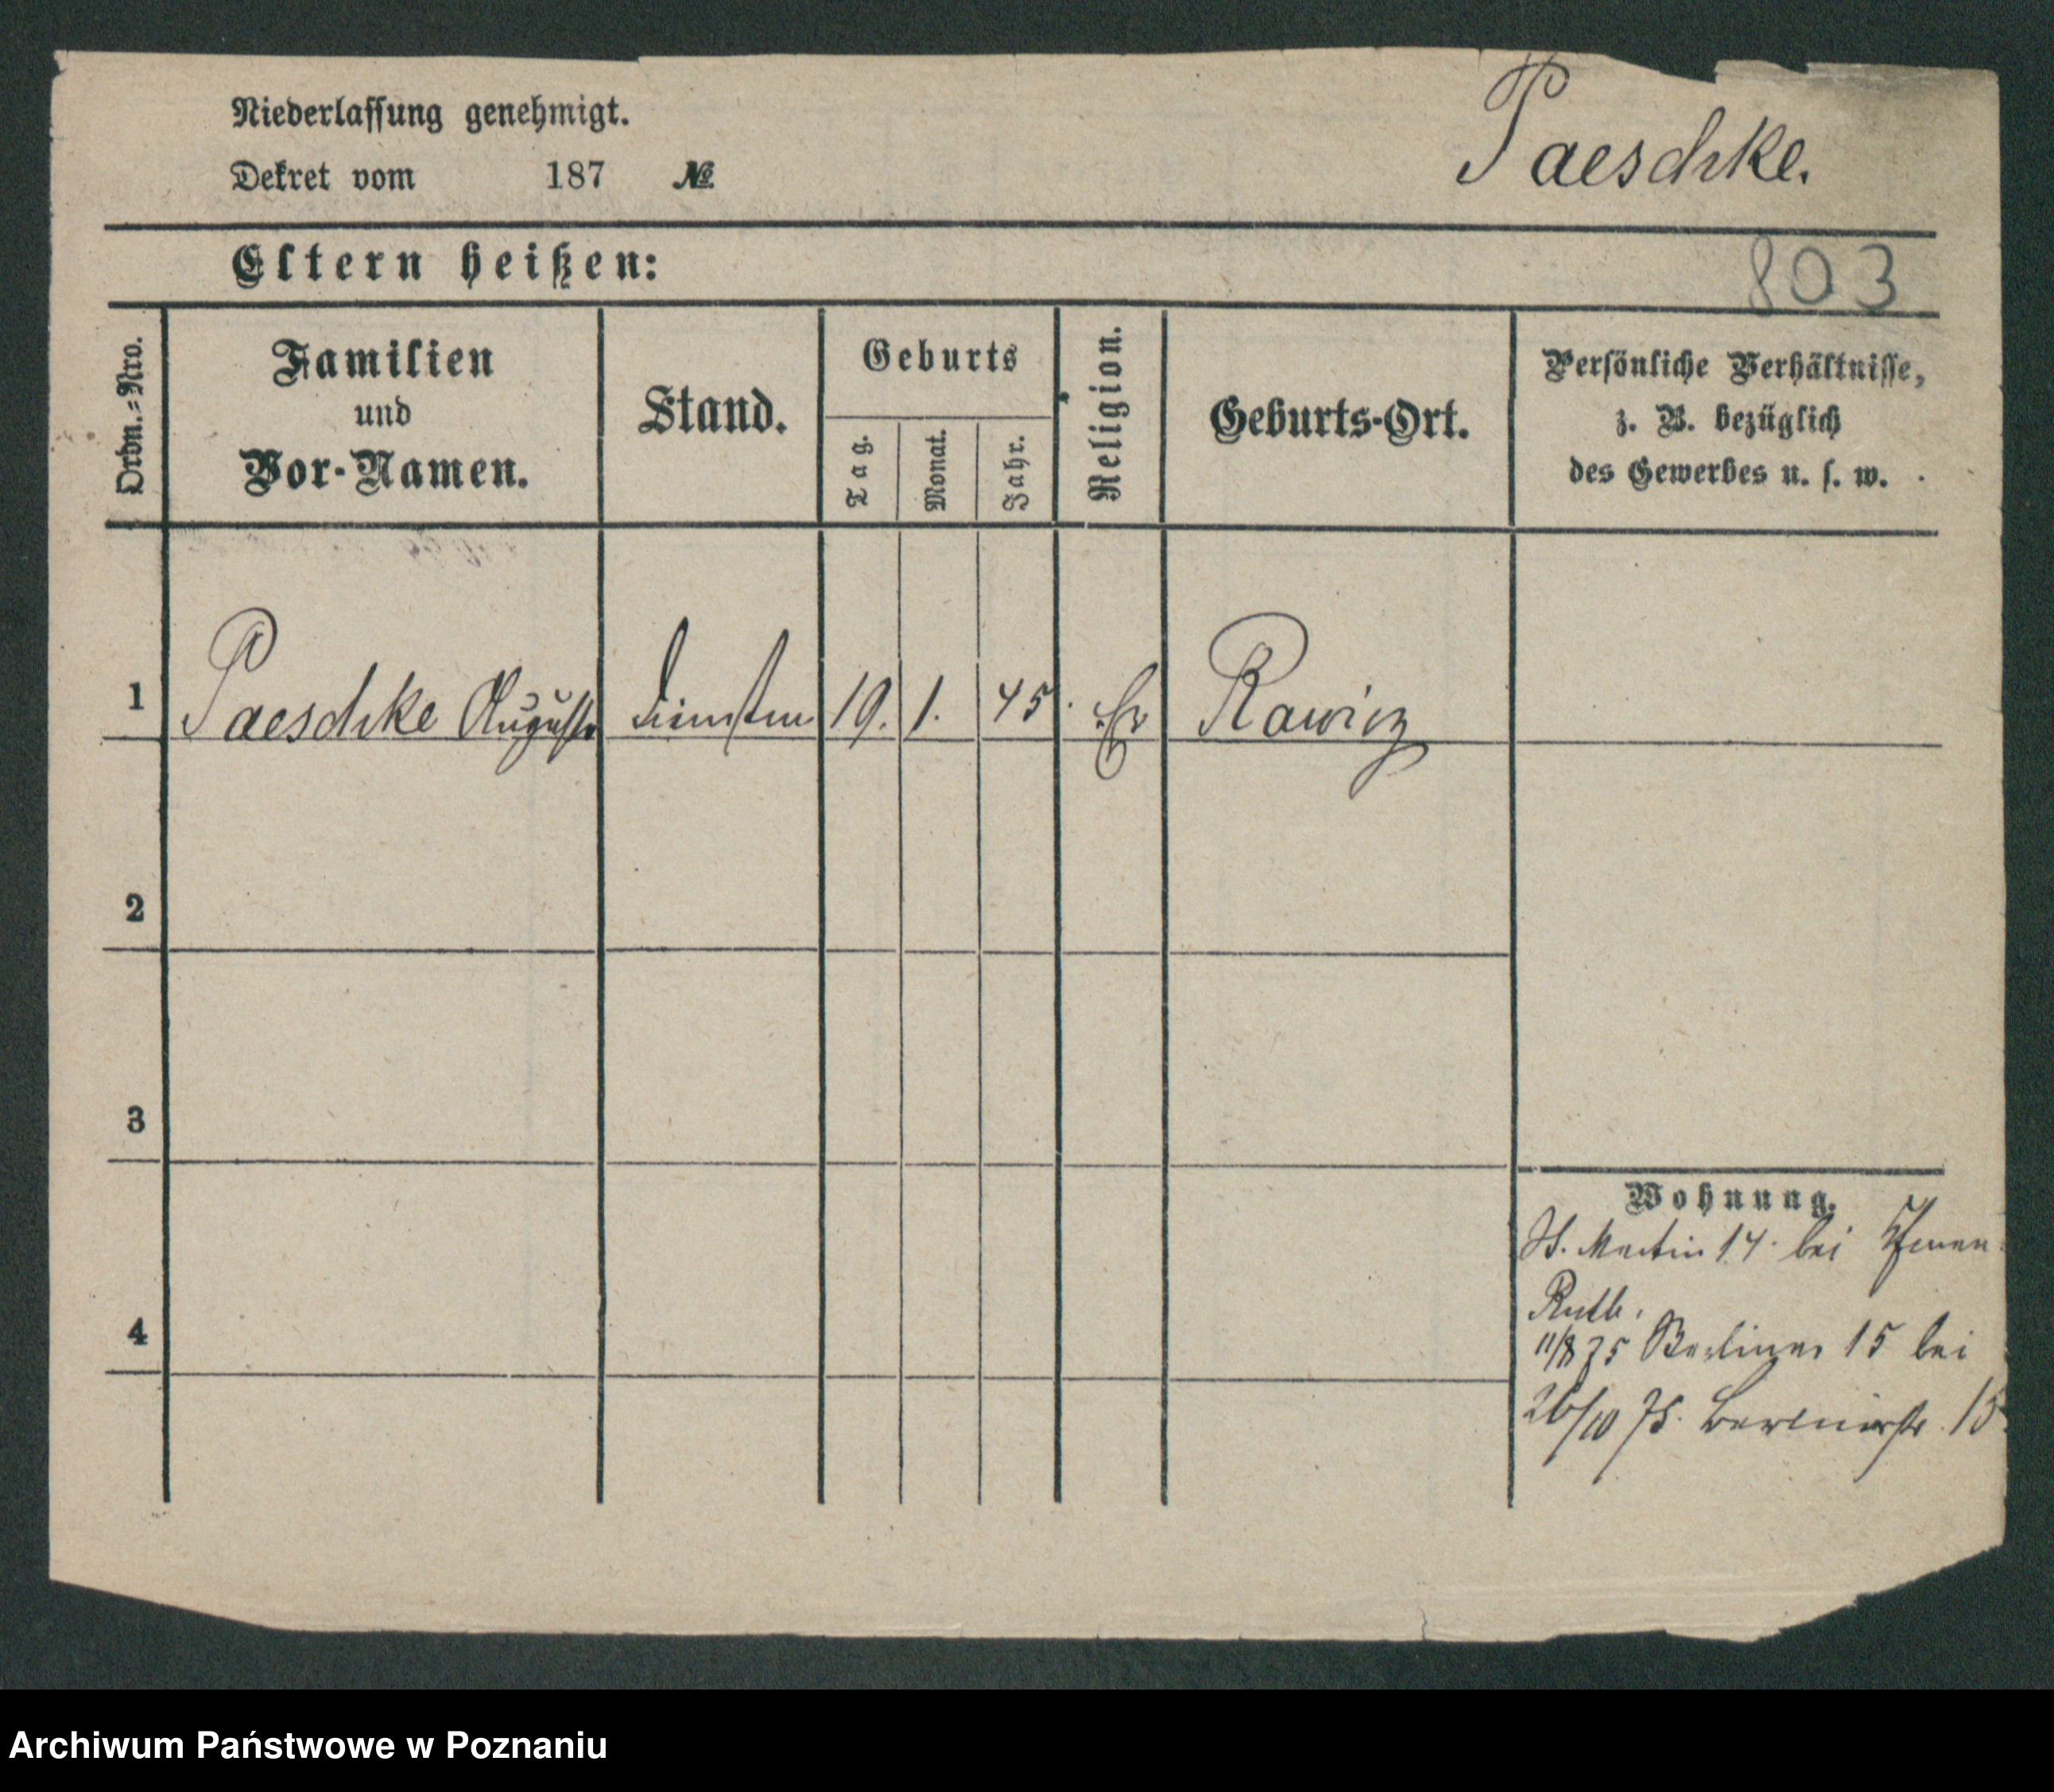 Niederlassung genehmigt.
Paeschke.
Dekret vom 187 №
Eltern heißen:
803
Ordn.=Nro.
Familien
und
Vor-Namen.
Stand.
Geburts
Tag.
Monat.
Jahr.
Religion.
Geburts-Ort.
Persönliche Verhältnisse,
z. B. bezüglich
des Gewerbes u. s. w.
1 Paeschke Auguste 19. 1. 45. Ev Rawicz
2
3
4
Wohnung.
St. Martin 14. bei
11/8 75 Berliner 15 bei
26/10 75. Berlinerstr. 15
Archiwum Państwowe w Poznaniu